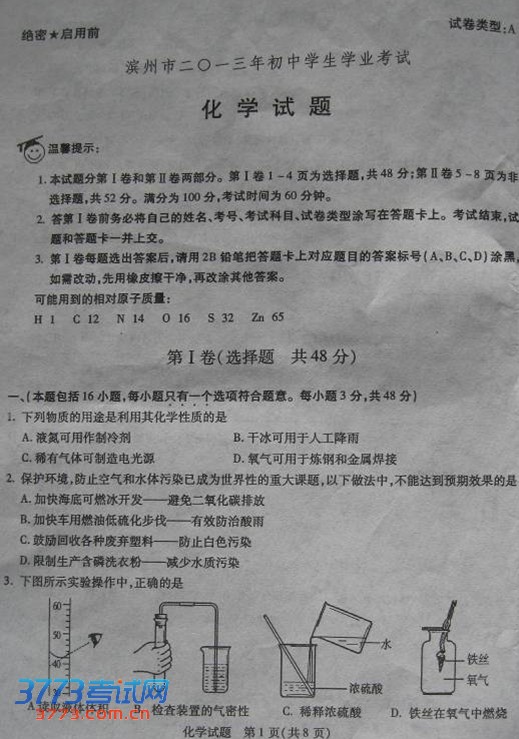 绝密★启用前
试卷类型:A
滨州市二〇一三年初中学生学业考试
化学试题
温馨提示:
1. 本试题分第Ⅰ卷和第Ⅱ卷两部分。第Ⅰ卷1-4页为选择题,共48分;第Ⅱ卷5-8页为非
选择题,共52分。满分为100分,考试时间为60分钟。
2. 答第Ⅰ卷前务必将自己的姓名、考号、考试科目、试卷类型涂写在答题卡上。考试结束,试
题和答题卡一并上交。
3. 第Ⅰ卷每题选出答案后,请用2B铅笔把答题卡上对应题目的答案标号(A、B、C、D)涂黑,
如需改动,先用橡皮擦干净,再改涂其他答案。
可能用到的相对原子质量:
H 1 C 12 N 14 O 16 S 32 Zn 65
第Ⅰ卷(选择题 共48分)
一、(本题包括16小题,每小题只有一个选项符合题意。每小题3分,共48分)
1. 下列物质的用途是利用其化学性质的是
A. 液氮可用作制冷剂 B. 干冰可用于人工降雨
C. 稀有气体可制造电光源 D. 氧气可用于炼钢和金属焊接
2. 保护环境,防止空气和水体污染已成为世界性的重大课题,以下做法中,不能达到预期效果的是
A. 加快海底可燃冰开发——避免二氧化碳排放
B. 加快车用燃油低硫化步伐——有效防治酸雨
C. 鼓励回收各种废弃塑料——防止白色污染
D. 限制生产含磷洗衣粉——减少水质污染
3. 下图所示实验操作中,正确的是
60
50
40
30
水
浓硫酸
铁丝
氧气
A. 读取液体体积 B. 检查装置的气密性 C. 稀释浓硫酸 D. 铁丝在氧气中燃烧
3773考试网
www.3773.com.cn
化学试题 第1页(共8页)